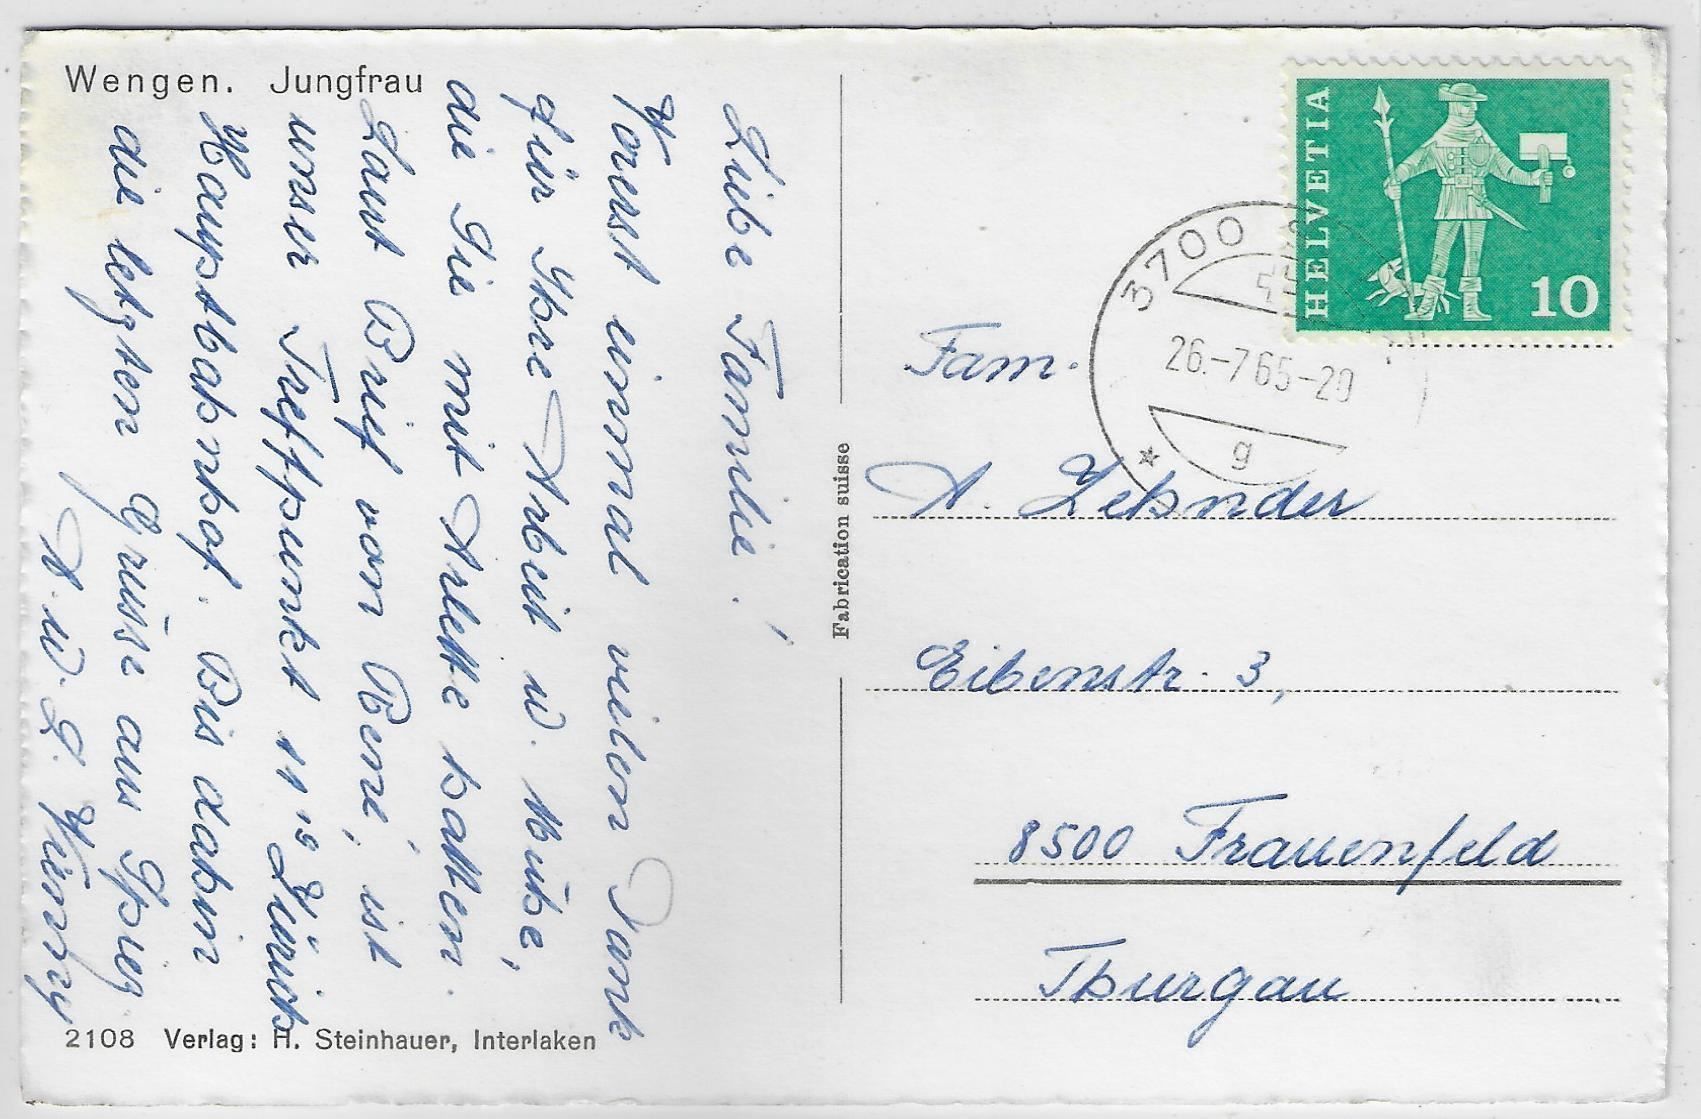 Wengen. Jungfrau
Liebe Familie!
Vorerst einmal vielen Dank
für Ihre Arbeit u. Mühe,
die Sie mit Arlette hatten.
Laut Brief von René, ist
unser Treffpunkt 11¹⁵ Zürich
Hauptbahnhof. Bis dahin
die letzten Grüsse aus Spiez
A. u. L.
2108 Verlag: H. Steinhauer, Interlaken
Fabrication suisse
HELVETIA
10
3700
26.-765-20
g
Fam.
A. Zehnder
Eibenstr. 3,
8500 Frauenfeld
Thurgau